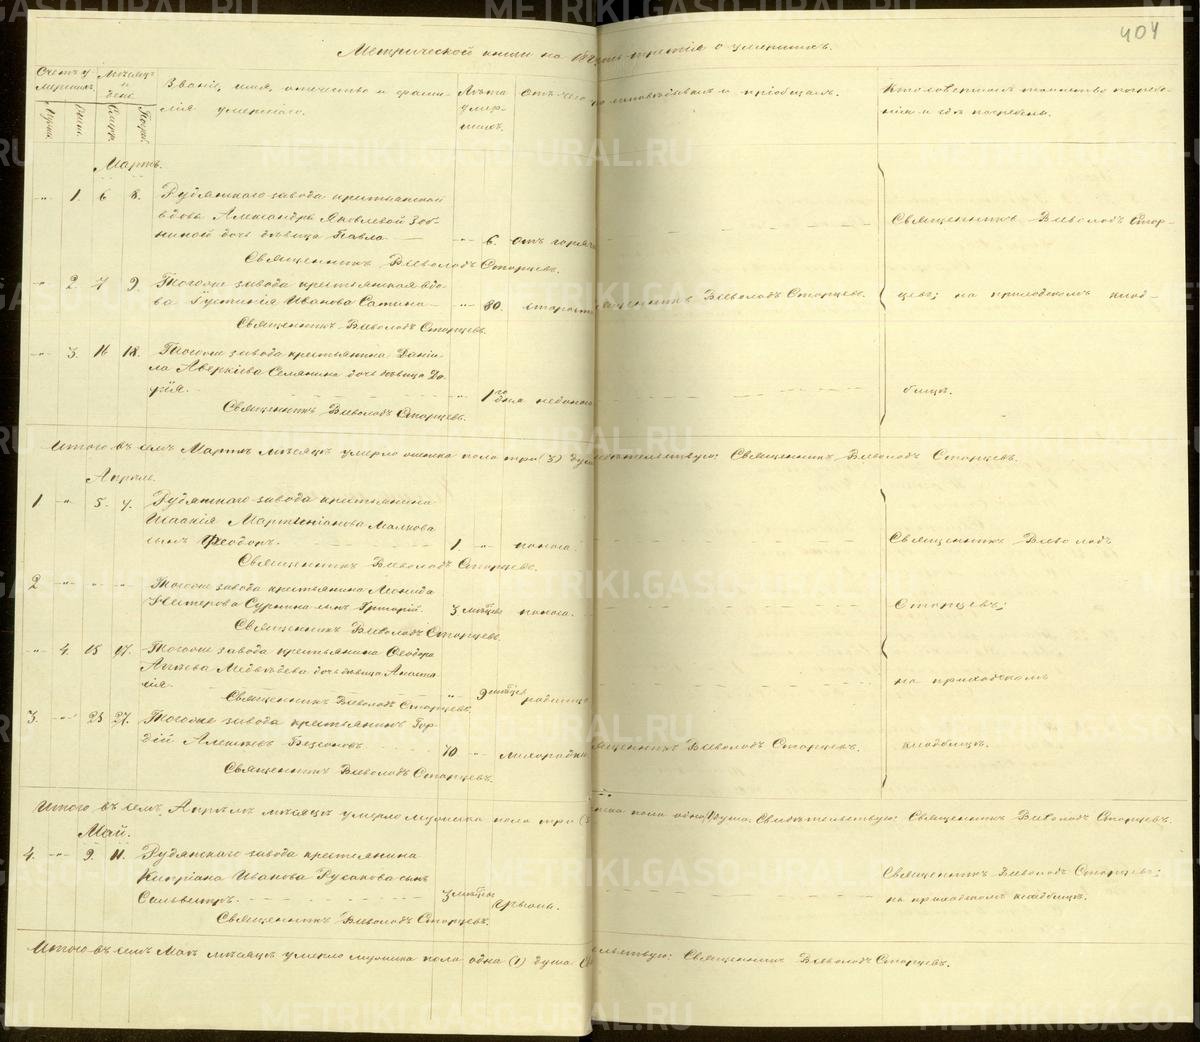 404
Метрической книги на 18 часть третія о умершихъ.
Счетъ умершихъ.
Мужеск.
Женс.
Мѣсяцъ и день.
Смерт.
Погреб.
Званіе, имя, отчество и фамилія умершаго.
Лѣта умершаго.
Отъ чего
исповѣдывалъ и пріобщалъ.
Кто совершалъ таинство погребенія и гдѣ погребены.
Мартъ.
" 1. 6 8. Рудянскаго завода крестьянской
вдовы Александры Яковлевой Зобниной
дочь дѣвица Павла. " 6. отъ горяч
Священникъ Всеволодъ Старцевъ.
" 2. 7 9. Тогоже завода крестьянская вдова
Іустинія Иванова Сапина " 80. старост
Священникъ Всеволодъ Старцевъ.
Священникъ Всеволодъ Старцевъ.
" 3. 16 18. Тогоже завода крестьянина Даніила
Аверкіева Селянина дочь дѣвица Дарія.
1 дня
Священникъ Всеволодъ Старцевъ.
Священникъ Всеволодъ Старцевъ; на приходскомъ кладбищѣ.
Итого въ семъ Мартѣ мѣсяцѣ умерло женска пола три (3) душ
тельствую: Священникъ Всеволодъ Старцевъ.
Апрѣль.
1 " 5. 7. Рудянскаго завода крестьянина
Исаакія Мартиніанова Малкова
сынъ Ѳеодоръ. 1. " поноса.
Священникъ Всеволодъ Старцевъ.
2 " " " Тогоже завода крестьянина Леонида
Нестерова Суркина сынъ Григорій. 3 мѣсяц поноса.
Священникъ Всеволодъ Старцевъ.
" 4. 15 17. Тогоже завода крестьянина Ѳеодора
Медвѣдева дочь дѣвица Анастасія.
" 9 мѣсяц родимц
Священникъ Всеволодъ Старцевъ.
3. " 25 27. Тогоже завода крестьянинъ Гордій
Алексѣевъ Безсоновъ. 70 " лихорадки
Священникъ Всеволодъ Старцевъ.
Священникъ Всеволодъ Старцевъ.
Священникъ Всеволодъ
Старцевъ;
на приходскомъ
кладбищѣ.
Итого въ семъ Апрѣлѣ мѣсяцѣ умерло мужска пола три (3
женска пола одна (1) душа. Свидѣтельствую: Священникъ Всеволодъ Старцевъ.
Май.
4. " 9. 11. Рудянскаго завода крестьянина
Кипріана Иванова Русакова сынъ
Сильвестръ. 3 мѣсяц грыжи.
Священникъ Всеволодъ Старцевъ.
Священникъ Всеволодъ Старцевъ;
на приходскомъ кладбищѣ.
Итого въ семъ Маѣ мѣсяцѣ умерло мужска пола одна (1) душа
тельствую: Священникъ Всеволодъ Старцевъ.
METRIKI.GASO-URAL.RU